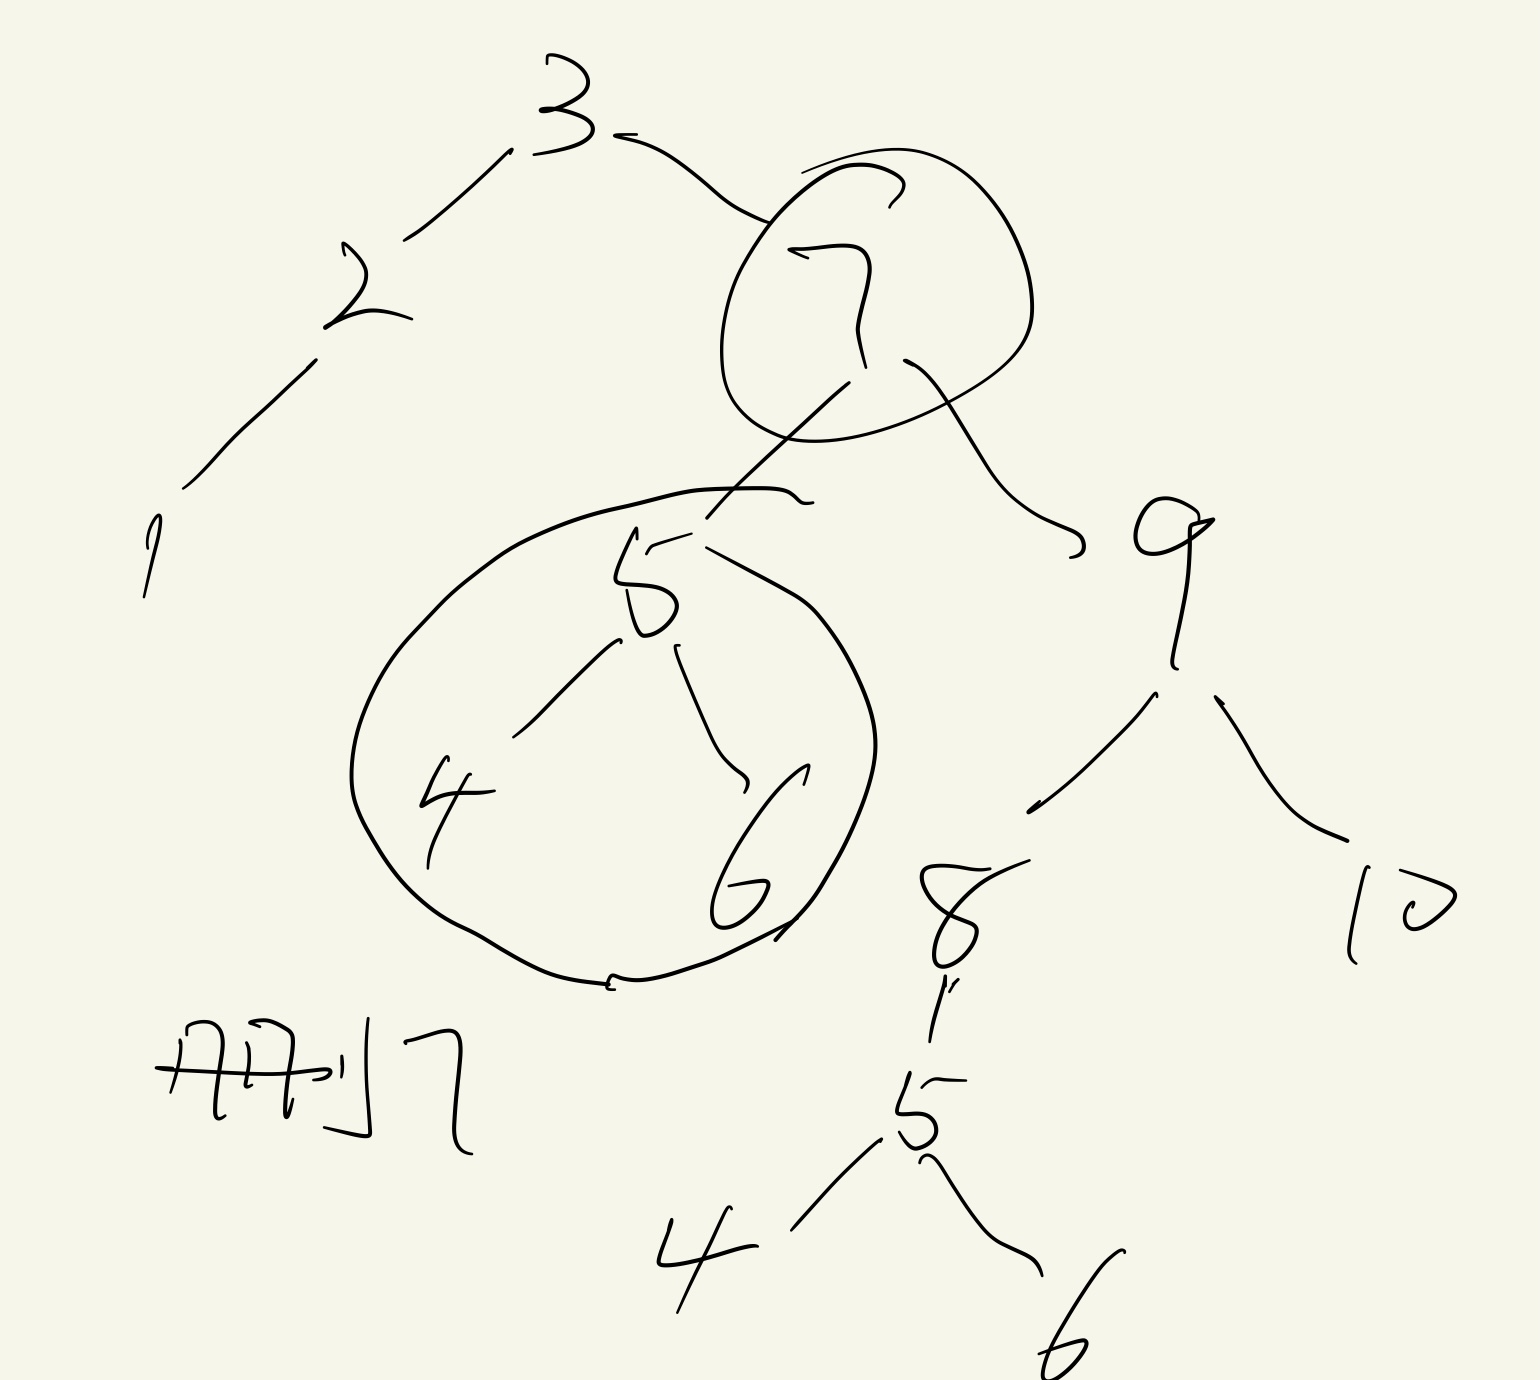 3
2 7
1 5 9
4 6 8 10
删 7
5
4 6